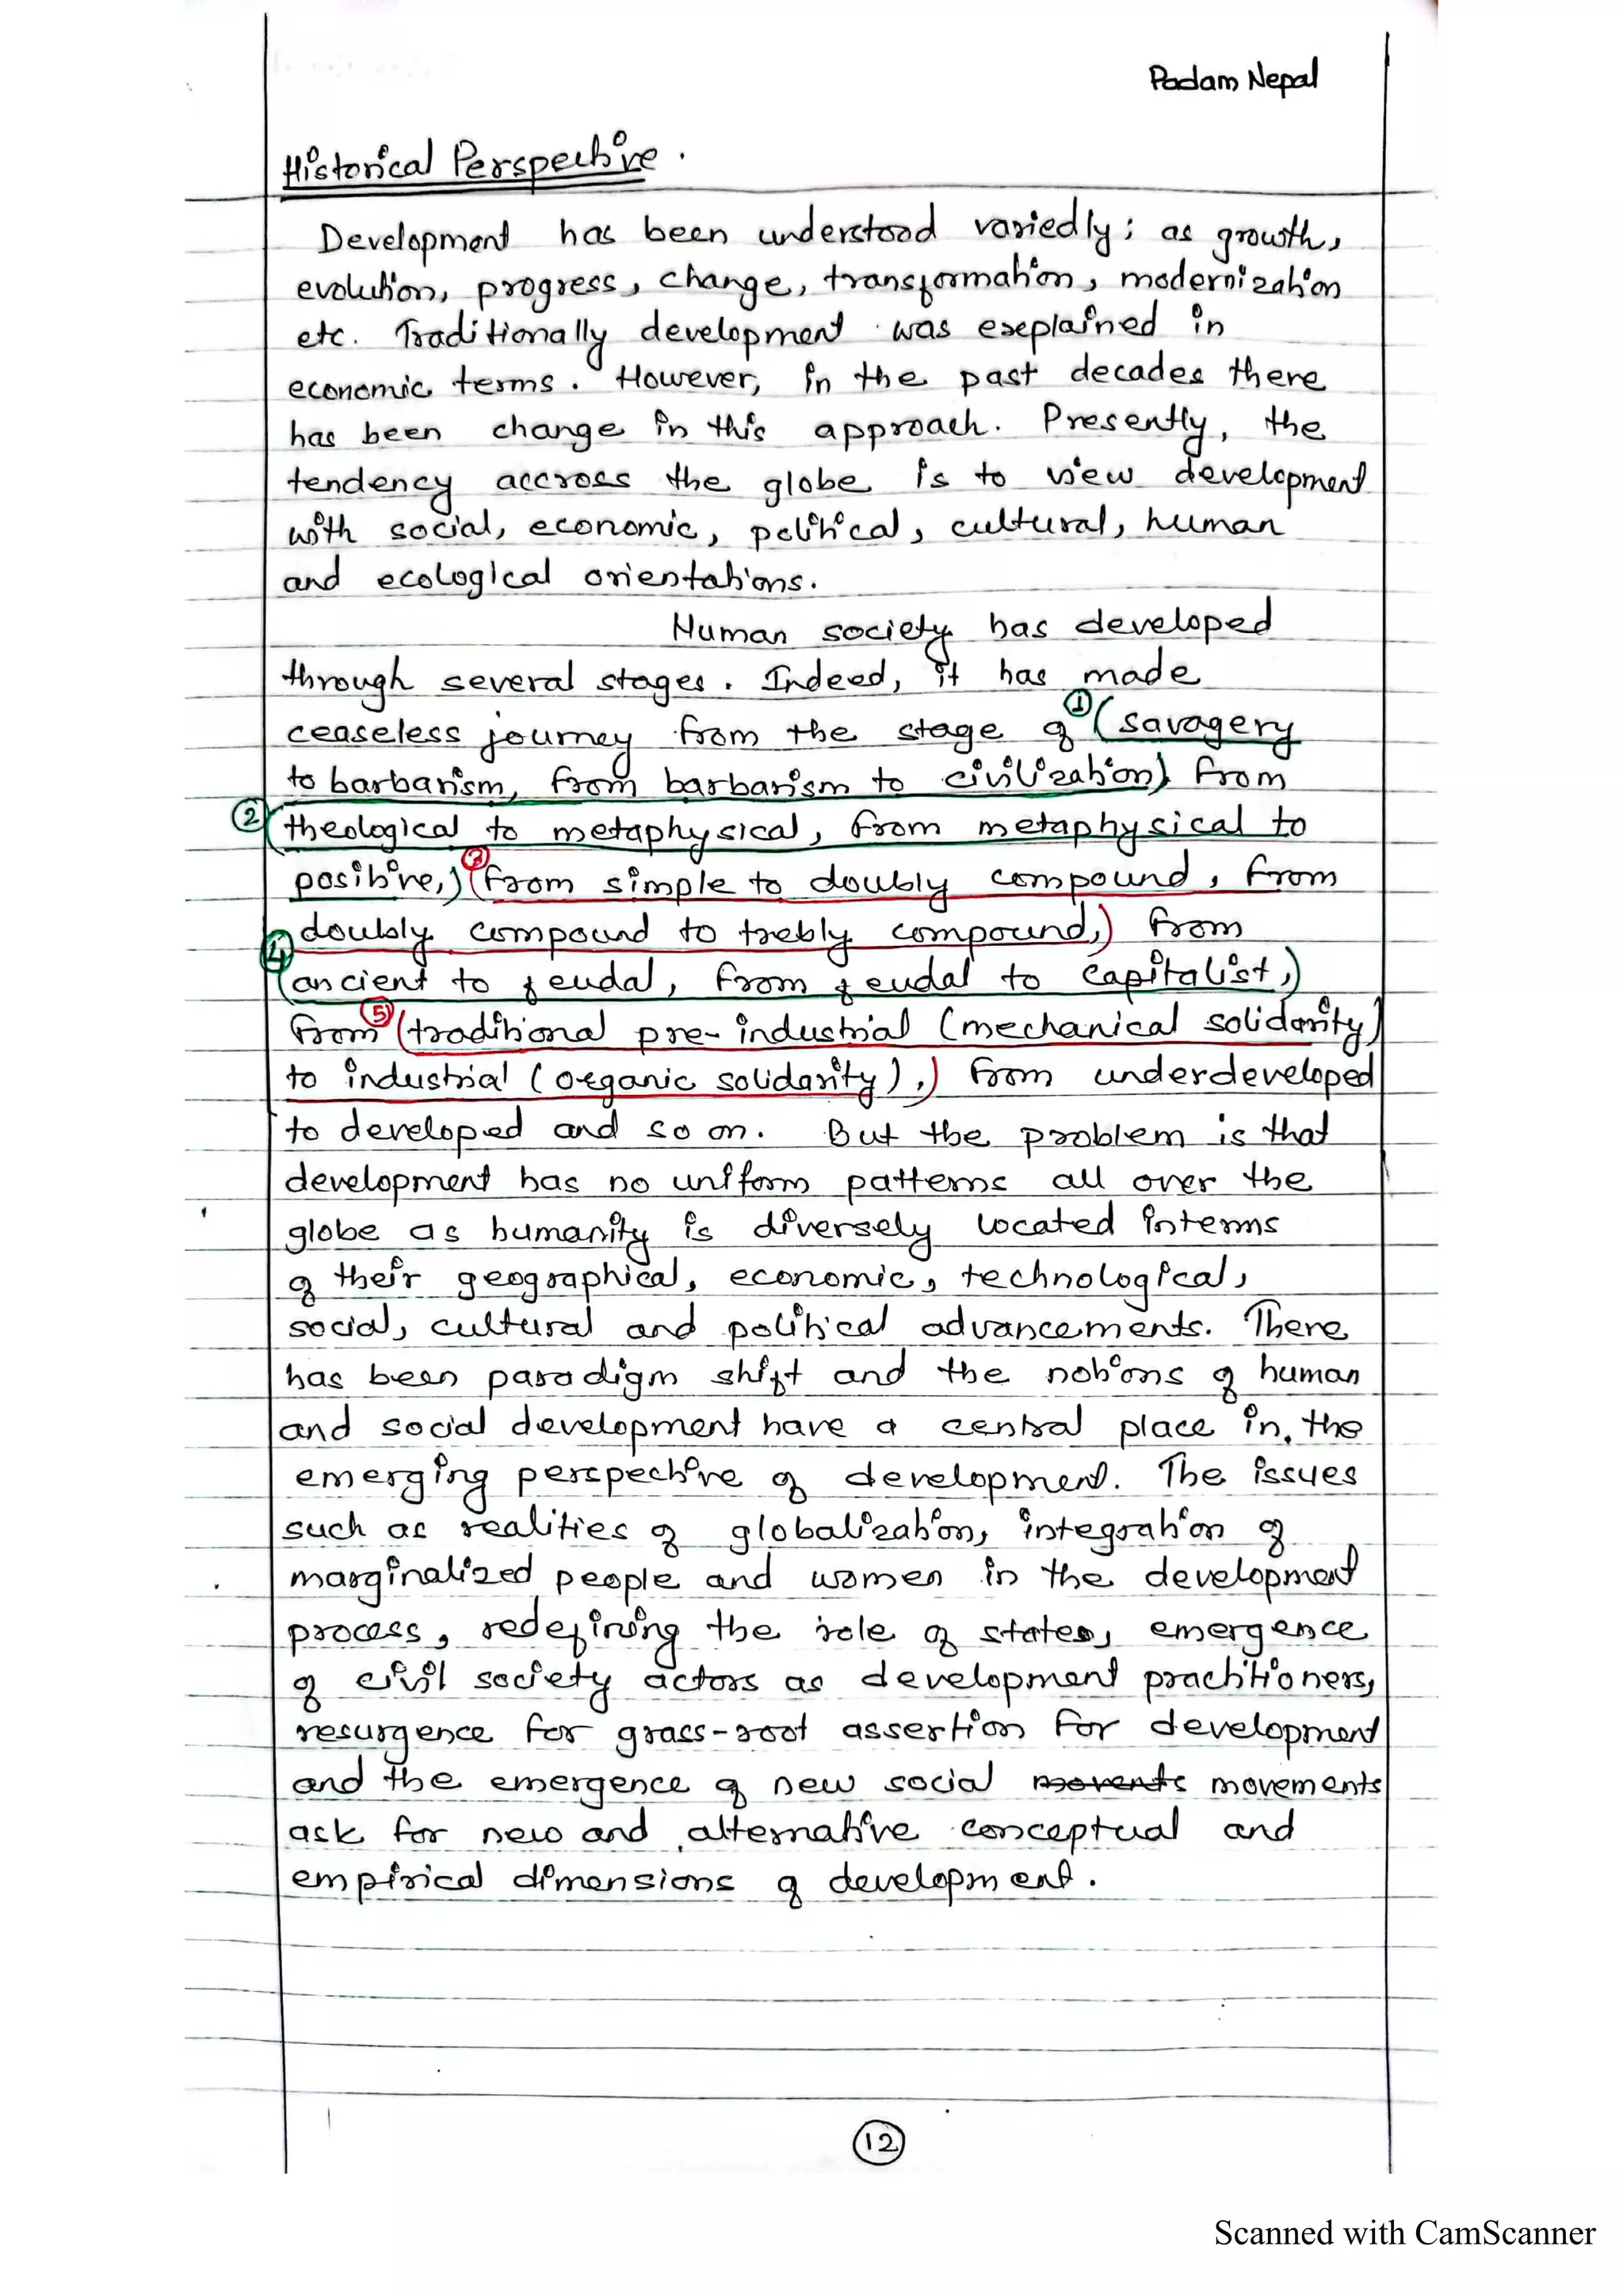 Padam Nepal
Historical Perspective.
Development has been understood variedly; as growth,
evolution, progress, change, transformation, modernization
etc. Traditionally development was explained in
economic terms. However, in the past decades there
has been change in this approach. Presently, the
tendency accross the globe is to view development
with social, economic, political, cultural, human
and ecological orientations.
Human society has developed
through several stages. Indeed, it has made
ceaseless journey from the stage of ① (savagery
to barbarism, from barbarism to civilization) from
② (theological to metaphysical, from metaphysical to
positive,) ③ (from simple to doubly compound, from
doubly compound to trebly compound,) from
④ (ancient to feudal, from feudal to capitalist,)
from ⑤ (traditional pre-industrial (mechanical solidarity)
to industrial (organic solidarity),) from underdeveloped
to developed and so on. But the problem is that
development has no uniform patterns all over the
globe as humanity is diversely located interms
of their geographical, economic, technological,
social, cultural and political advancements. There
has been paradigm shift and the notions of human
and social development have a central place in the
emerging perspective of development. The issues
such as realities of globalization, integration of
marginalized people and women in the development
process, redefining the role of states, emergence
of civil society actors as development practitioners,
resurgence for grass-root assertion for development
and the emergence of new social movents movements
ask for new and alternative conceptual and
empirical dimensions of development.
12
Scanned with CamScanner